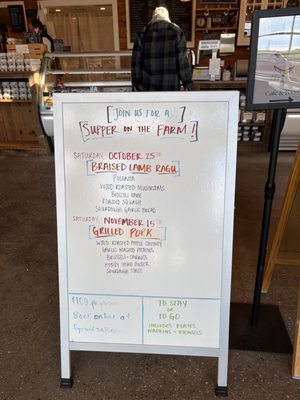 JOIN US FOR A
SUPPER ON THE FARM!
SATURDAY, OCTOBER 25TH
BRAISED LAMB RAGU
POLENTA
WOOD ROASTED MUSHROOMS
BROCCOLI RABE
ROASTED SQUASH
SOURDOUGH GARLIC BREAD
SATURDAY, NOVEMBER 15TH
GRILLED PORK
WOOD ROASTED APPLE CHUTNEY
GARLIC MASHED POTATOES
BRUSSELS + CARROTS
SOURDOUGH TOAST
$100 per person
Book online at
TO STAY
OR
TO GO
INCLUDES PLATES,
NAPKINS + UTENSILS